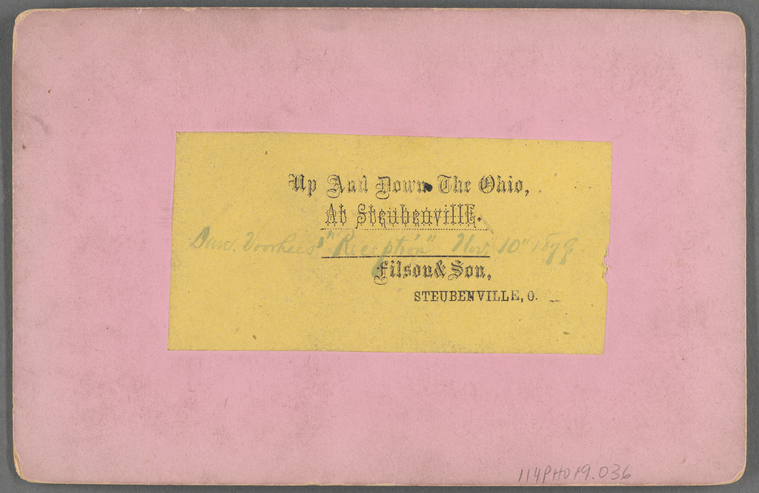 Up And Down The Ohio,
At Steubenville.
Dan. Voorhees' "Reception" Nov. 10" 1879.
Filson & Son,
STEUBENVILLE, O.
114PH019.036